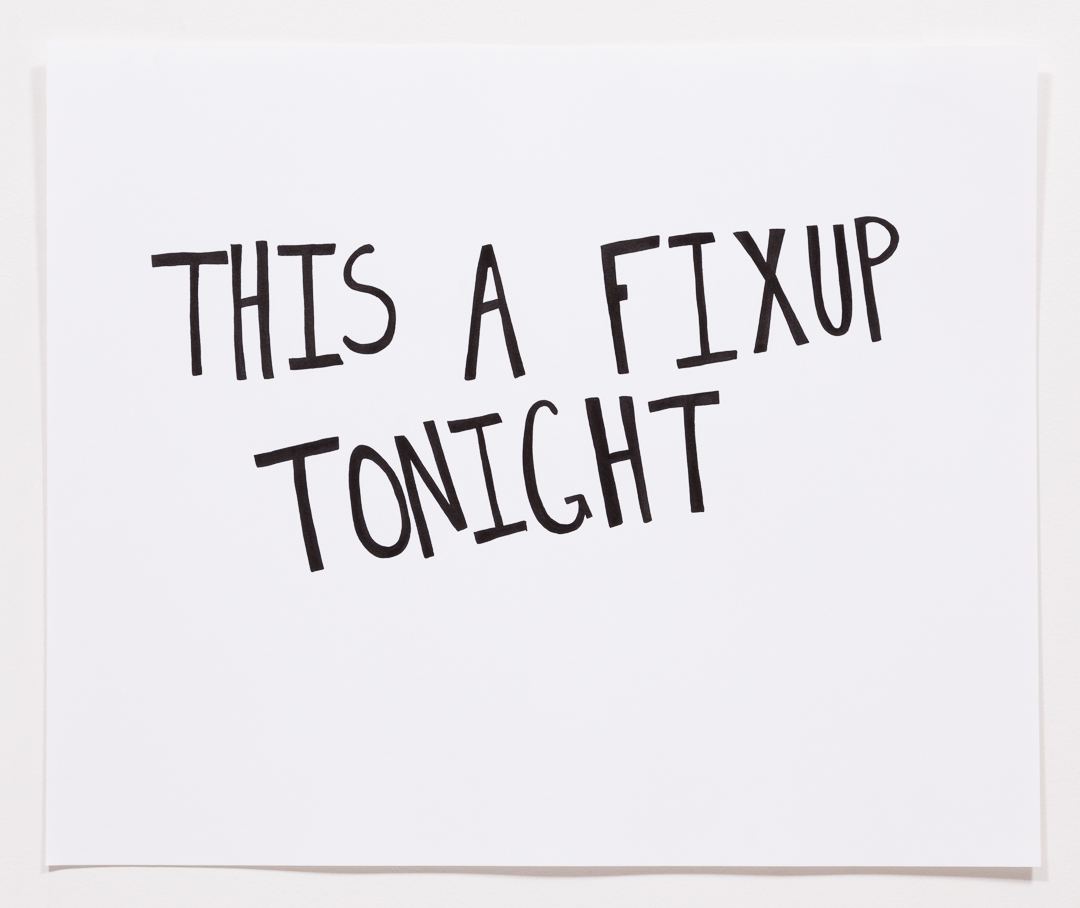 THIS A FIXUP
TONIGHT